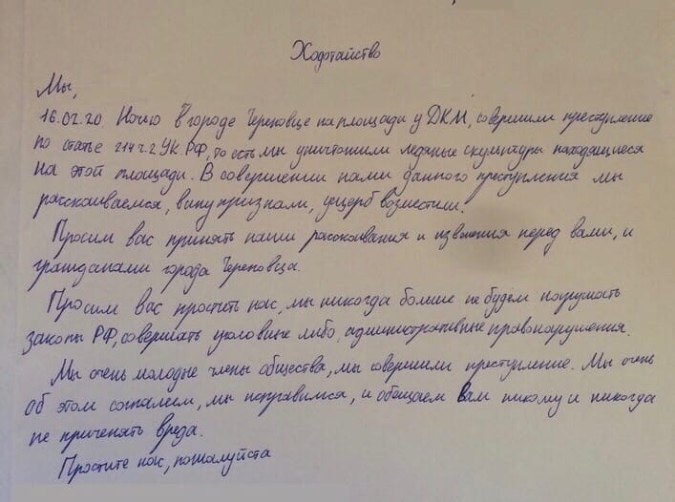 Ходотайство
Мы,
16.02.20. Ночью в городе Череповце на площади у ДКМ, совершили преступление
по статье 214 ч.2 УК РФ, то есть мы уничтожили ледяные скульптуры находящиеся
на этой площади. В совершении нами данного преступления мы
расскаиваемся, вину признали, ущерб возместили.
Просим вас принять наши расскаивания и извинения перед вами, и
гражданами города Череповца.
Просим вас простить нас, мы никогда больше не будем нарушать
законы РФ, совершать уголовные либо, административные правонарушения.
Мы очень молодые члены общества, мы совершили преступление. Мы очень
об этом сожалеем, мы исправимся, и обещаем вам никому и никогда
не приченять вреда.
Простите нас, пожалуйста